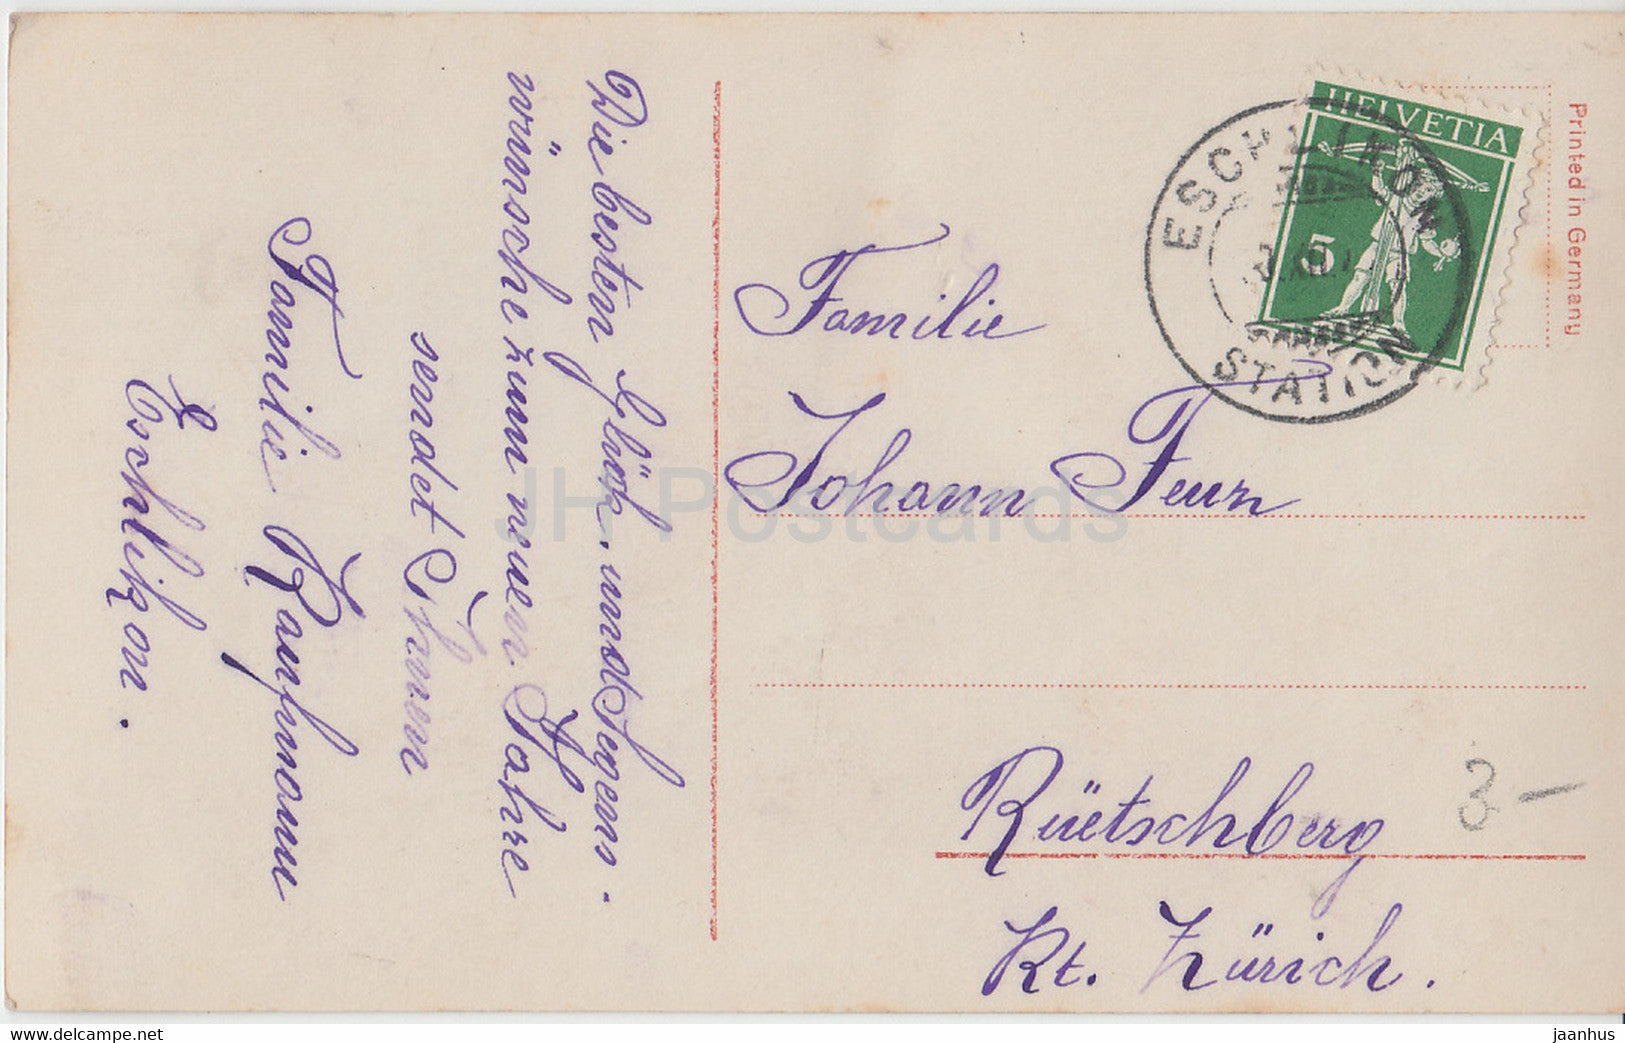 Die besten Glück. und Segens-
wünsche zum neuen Jahre
sendet Ihnen
Familie Kaufmann
Eschlikon.
Familie
Johann Feurz
Rüetschberg
Kt. Zürich.
3-
HELVETIA
5
ESCHLIKON
STATION
Printed in Germany
JH Postcards
www.delcampe.net
jaanhus